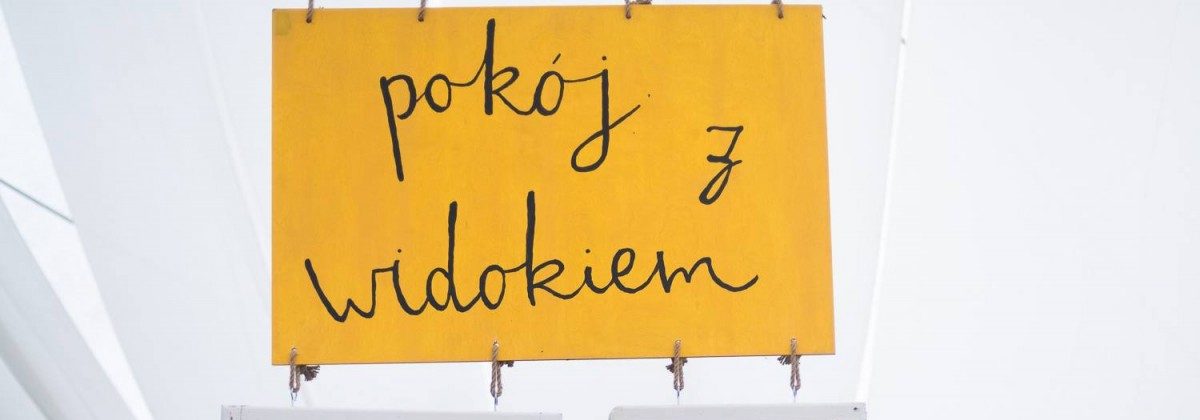 pokój z
widokiem